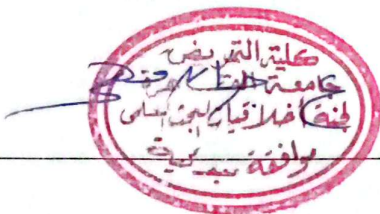 كلية التمريض
جامعة القاهرة
لجنة أخلاقيات البحث العلمى
موافقة مبدئية